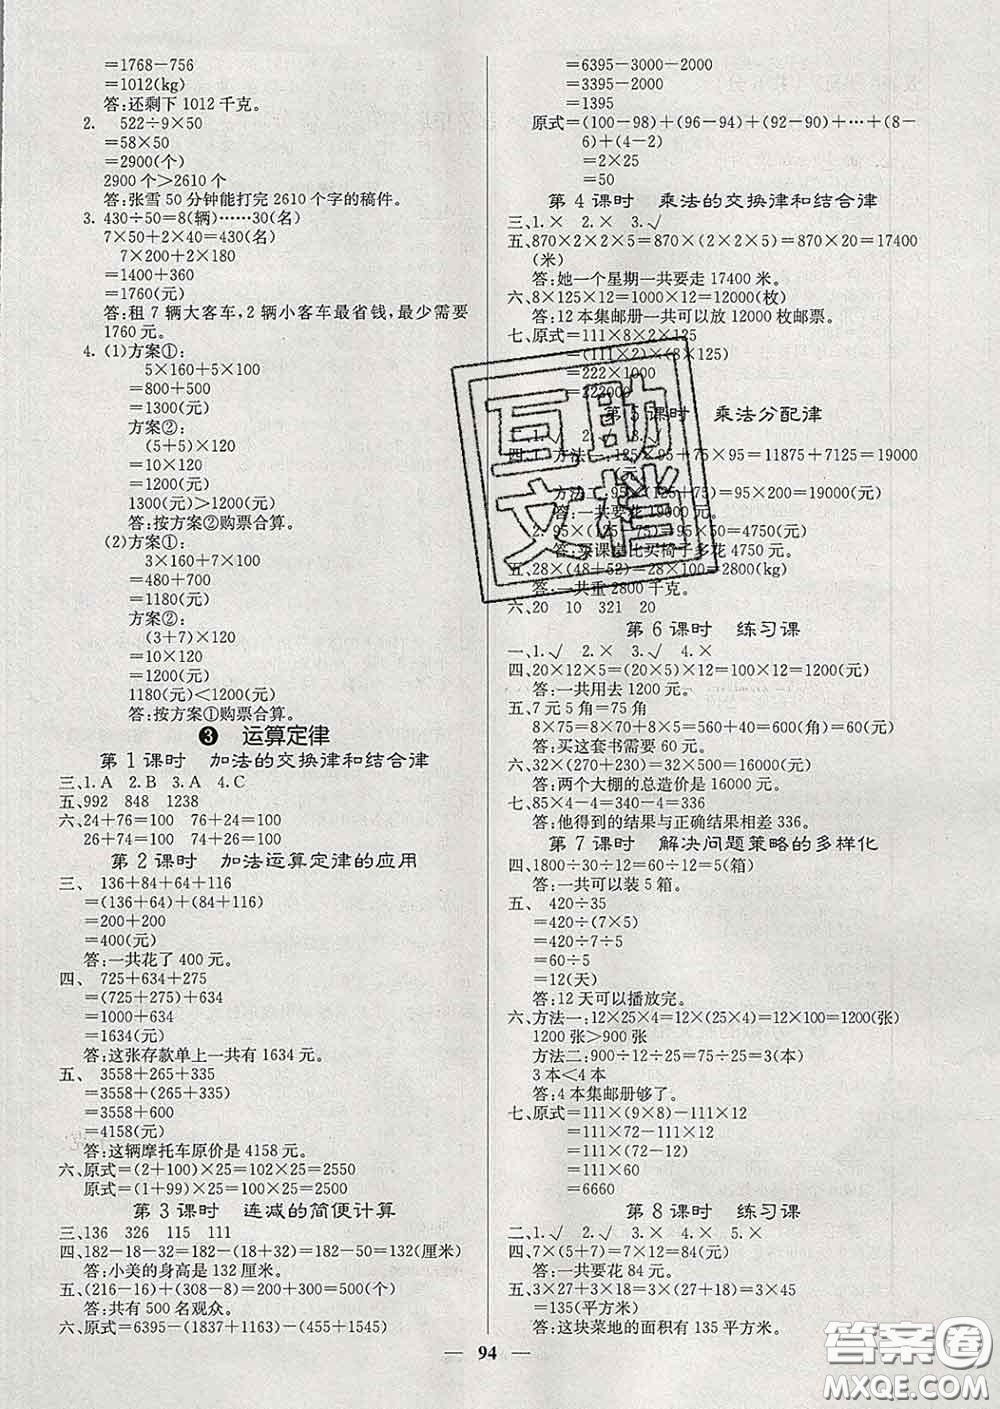 =1768-756
=1012(kg)
答:还剩下 1012 千克。
2. 522÷9×50
=58×50
=2900(个)
2900 个>2610 个
答:张雪 50 分钟能打完 2610 个字的稿件。
3. 430÷50=8(辆)……30(名)
7×50+2×40=430(名)
7×200+2×180
=1400+360
=1760(元)
答:租 7 辆大客车,2 辆小客车最省钱,最少需要
1760 元。
4. (1)方案①:
5×160+5×100
=800+500
=1300(元)
方案②:
(5+5)×120
=10×120
=1200(元)
1300(元)>1200(元)
答:按方案②购票合算。
(2)方案①:
3×160+7×100
=480+700
=1180(元)
方案②:
(3+7)×120
=10×120
=1200(元)
1180(元)<1200(元)
答:按方案①购票合算。
❸ 运算定律
第 1 课时 加法的交换律和结合律
三、1. A 2. B 3. A 4. C
五、992 848 1238
六、24+76=100 76+24=100
26+74=100 74+26=100
第 2 课时 加法运算定律的应用
三、 136+84+64+116
=(136+64)+(84+116)
=200+200
=400(元)
答:一共花了 400 元。
四、 725+634+275
=(725+275)+634
=1000+634
=1634(元)
答:这张存款单上一共有 1634 元。
五、 3558+265+335
=3558+(265+335)
=3558+600
=4158(元)
答:这辆摩托车原价是 4158 元。
六、原式=(2+100)×25=102×25=2550
原式=(1+99)×25=100×25=2500
第 3 课时 连减的简便计算
三、136 326 115 111
四、182-18-32=182-(18+32)=182-50=132(厘米)
答:小美的身高是 132 厘米。
五、(216-16)+(308-8)=200+300=500(个)
答:共有 500 名观众。
六、原式=6395-(1837+1163)-(455+1545)
=6395-3000-2000
=3395-2000
=1395
原式=(100-98)+(96-94)+(92-90)+…+(8-
6)+(4-2)
=2×25
=50
第 4 课时 乘法的交换律和结合律
三、1. × 2. × 3. √
五、870×2×2×5=870×(2×2×5)=870×20=17400
(米)
答:她一个星期一共要走 17400 米。
六、8×125×12=1000×12=12000(枚)
答:12 本集邮册一共可以放 12000 枚邮票。
七、原式=111×8×2×125
=(111×2)×(8×125)
=222×1000
=222000
第 5 课时 乘法分配律
二、1. √ 2. √ 3. √
四、1. 方法一:125×95+75×95=11875+7125=19000
(元)
方法二:95×(125+75)=95×200=19000(元)
答:一共要花 19000 元。
2. 95×(125-75)=95×50=4750(元)
答:买课桌比买椅子多花 4750 元。
五、28×(48+52)=28×100=2800(kg)
答:一共重 2800 千克。
六、20 10 321 20
第 6 课时 练习课
一、1. √ 2. × 3. √ 4. ×
四、20×12×5=(20×5)×12=100×12=1200(元)
答:一共用去 1200 元。
五、7 元 5 角=75 角
8×75=8×(70+5)=8×70+8×5=560+40=600(角)=60(元)
答:买这套书需要 60 元。
六、32×(270+230)=32×500=16000(元)
答:两个大棚的总造价是 16000 元。
七、85×4-4=340-4=336
答:他得到的结果与正确结果相差 336。
第 7 课时 解决问题策略的多样化
四、1800÷30÷12=60÷12=5(箱)
答:一共可以装 5 箱。
五、 420÷35
=420÷(7×5)
=420÷7÷5
=60÷5
=12(天)
答:12 天可以播放完。
六、方法一:12×25×4=12×(25×4)=12×100=1200(张)
1200 张>900 张
方法二:900÷12÷25=75÷25=3(本)
3 本<4 本
答:4 本集邮册够了。
七、原式=111×(9×8)-111×12
=111×72-111×12
=111×(72-12)
=111×60
=6660
第 8 课时 练习课
二、1. √ 2. √ 3. × 4. × 5. ×
四、7×(5+7)=7×12=84(元)
答:一共要花 84 元。
五、3×27+3×18=3×(27+18)=3×45
=135(平方米)
答:这块菜地的面积有 135 平方米。
94
互助
文档
答案圈
MXQE.COM